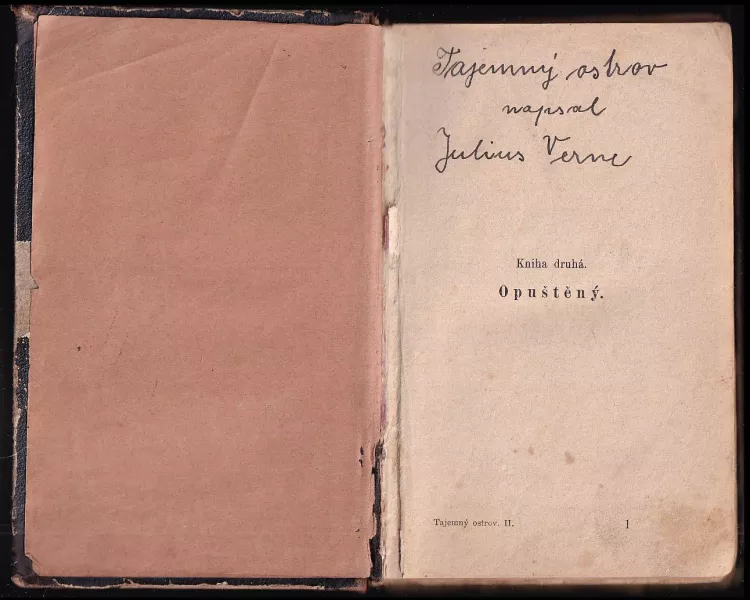 Tajemný ostrov
napsal
Julius Verne
Kniha druhá.
Opuštěný.
Tajemný ostrov. II.
1